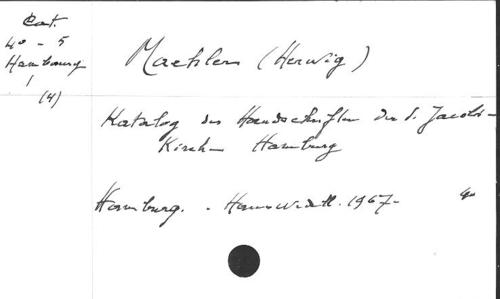 Cat.
4° - 5
Hambourg
1
(4)
Maehler (Herwig)
Katalog der Handschriften der S. Jacobi-
Kirche Hamburg
Hamburg. - Hauswedell. 1967- 4°